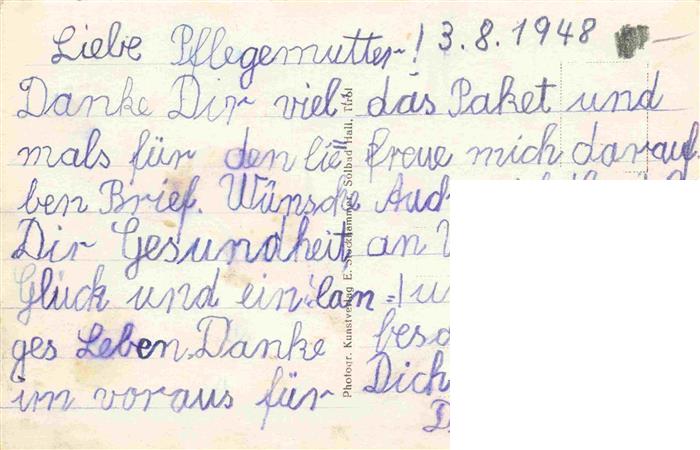 Liebe Pflegemutter! 3.8.1948
Danke Dir viel
mals für den lie=
ben Brief. Wünsche
Dir Gesundheit,
Glück und ein lan=
ges Leben. Danke
im voraus für
das Paket und
freue mich darauf.
an
Dich
Photogr. Kunstverlag E. Stockhammer, Solbad Hall, Tirol